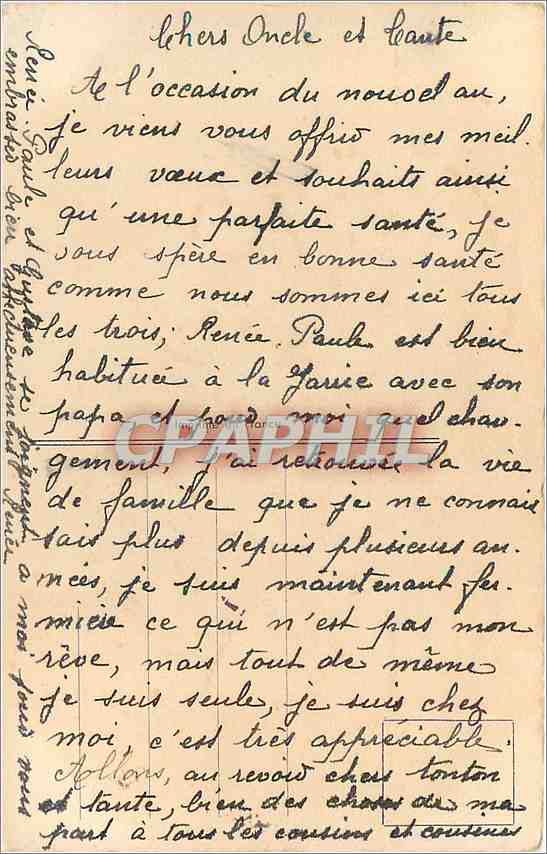 Chers Oncle et Tante
A l'occasion du nouvel an,
je viens vous offrir mes meil.
leurs vœux et souhaits ainsi
qu'une parfaite santé, je
vous spère en bonne santé
comme nous sommes ici tous
les trois; Renée. Paule est bien
habituée à la Jarrie avec son
papa, et pour moi quel chan-
gement, j'ai retrouvée la vie
de famille que je ne connais
sais plus depuis plusieurs an.
nées, je suis maintenant fer-
mière ce qui n'est pas mon
rêve, mais tout de même
je suis seule, je suis chez
moi c'est très appréciable.
Allons, au revoir chers tonton
et tante, bien des choses de ma
part à tous les cousins et cousines
Renée. Paule et Gustave se joignent à moi pour vous
embrasser bien affectueusement Renée
CPAPHIL